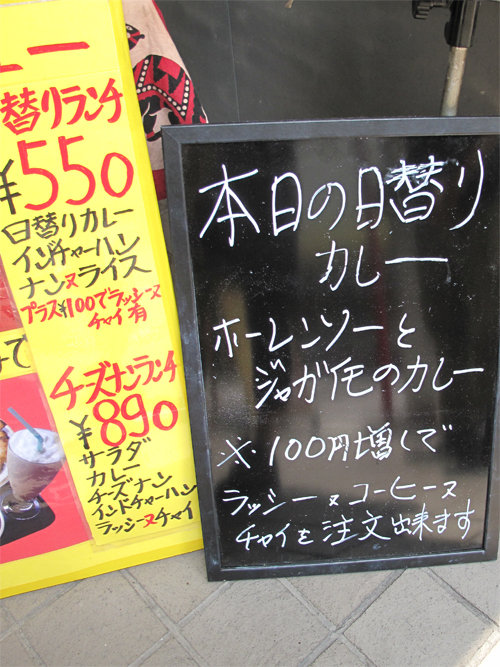 ュー
替りランチ
¥550
日替りカレー
インドチャーハン
ナンヌライス
プラス¥100でラッシーヌ
チャイ有
で
チーズナンランチ
¥890
サラダ
カレー
チーズナン
インドチャーハン
ラッシーヌチャイ
本日の日替り
カレー
ホーレンソーと
ジャガイモのカレー
※100円増しで
ラッシーヌコーヒーヌ
チャイを注文出来ます